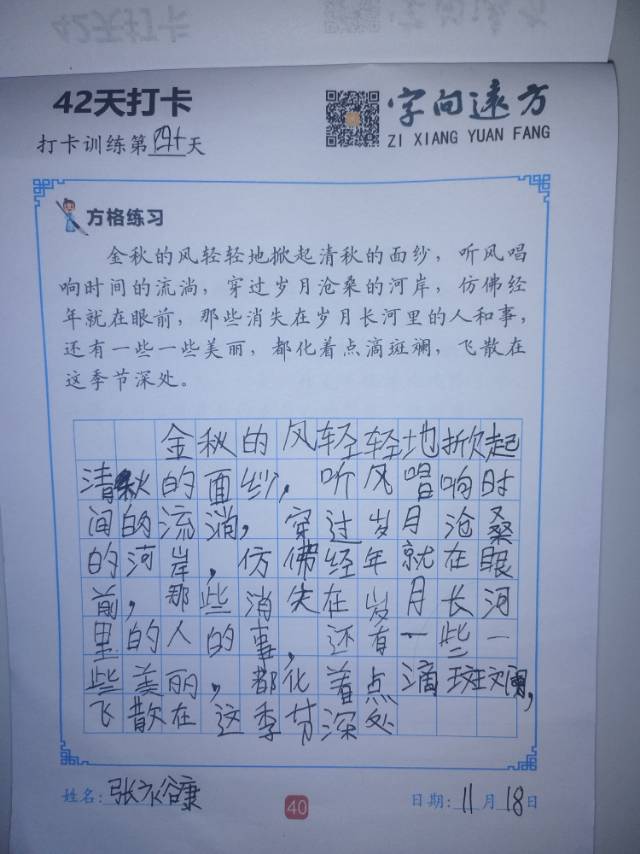 42天打卡
42天打卡
字向远方
ZI XIANG YUAN FANG
打卡训练第四十天
方格练习
金秋的风轻轻地掀起清秋的面纱，听风唱
响时间的流淌，穿过岁月沧桑的河岸，仿佛经
年就在眼前，那些消失在岁月长河里的人和事，
还有一些一些美丽，都化着点滴斑斓，飞散在
这季节深处。
金秋的风轻轻地掀起
清秋的面纱，听风唱响时
间的流淌，穿过岁月沧桑
的河岸，仿佛经年就在眼
前，那些消失在岁月长河
里的人的事，还有一些一
些美丽，都化着点滴斑斓，
飞散在这季节深处
姓名：张
40
日期：11月18日